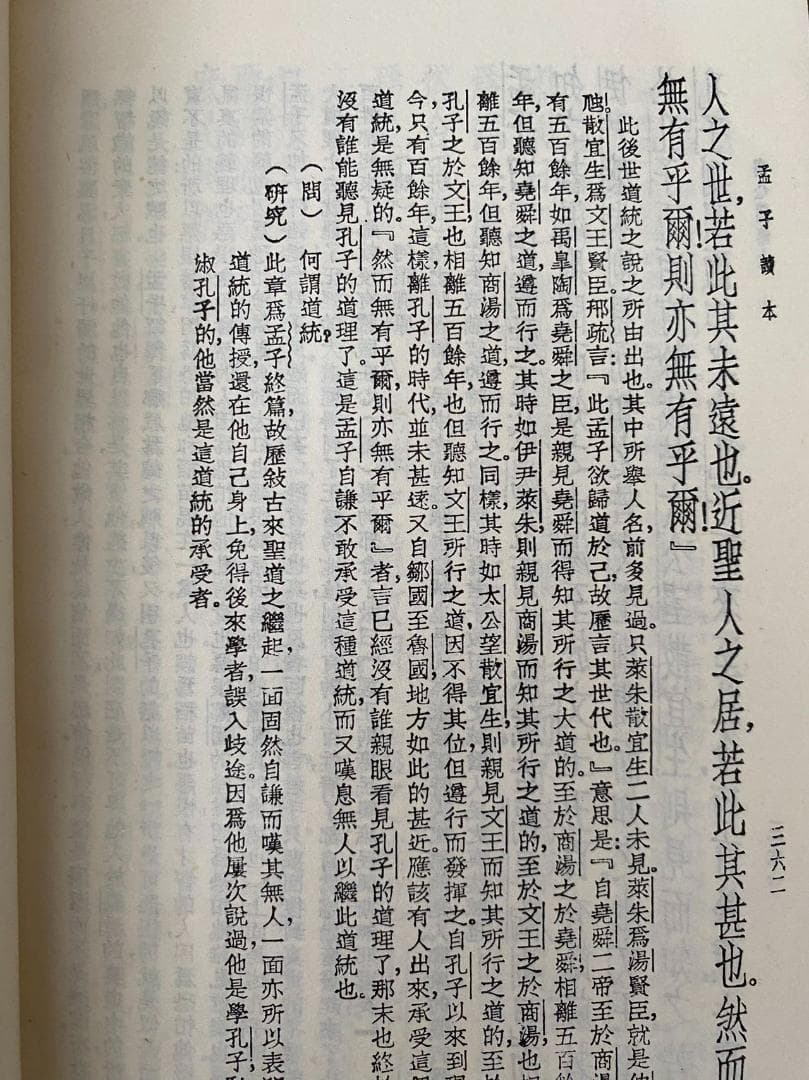 孟子讀本
三六二
人之世，若此其未遠也。近聖人之居，若此其甚也。然而
無有乎爾！則亦無有乎爾！』
此後世道統之說之所由出也。其中所舉人名，前多見過。只萊朱散宜生二人未見。萊朱爲湯賢臣，就是仲
虺。散宜生爲文王賢臣。邢疏言：『此孟子欲歸道於己，故歷言其世代也。』意思是：『自堯舜二帝至於商湯
有五百餘年，如禹臯陶爲堯舜之臣，是親見堯舜而得知其所行之大道的。至於商湯之於堯舜，相離五百餘
年，但聽知堯舜之道，遵而行之。其時如伊尹萊朱，則親見商湯而知其所行之道的，至於文王之於商湯，也
離五百餘年，但聽知商湯之道，遵而行之。同樣，其時如太公望散宜生，則親見文王而知其所行之道的，
孔子之於文王，也相離五百餘年，也但聽知文王所行之道，因不得其位，但遵行而發揮之。自孔子以來到現
今，只有百餘年，這樣離孔子的時代，並未甚遠。又自鄒國至魯國地方如此的甚近，應該有人出來承受這個
道統是無疑的。『然而無有乎爾，則亦無有乎爾』者，言已經沒有誰親眼看見孔子的道理了，那末也終於
沒有誰能聽見孔子的道理了。這是孟子自謙不敢承受這種道統，而又嘆息無人以繼此道統也。
（問）何謂道統？
（研究）此章爲孟子終篇，故歷敍古來聖道之繼起，一面固然自謙而嘆其無人，一面亦所以表
道統的傳授，還在他自己身上，免得後來學者，誤入歧途。因爲他屢次說過，他是學孔子，
淑孔子的，他當然是這道統的承受者。